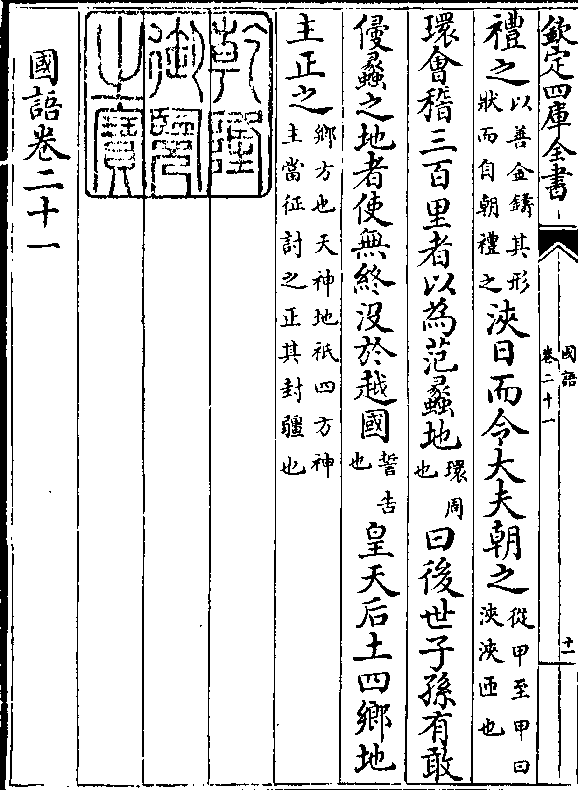 欽定四庫全書
國語
卷二十一
十一
禮之以善金鑄其形狀而自朝禮之浹日而令大夫朝之從甲至甲曰浹浹匝也
環會稽三百里者以為范蠡地環周也曰後世子孫有敢
侵蠡之地者使無終没於越國誓告也皇天后土四鄉地
主正之鄉方也天神地祇四方神主當征討之正其封疆也
乾隆御覽之寶
國語卷二十一